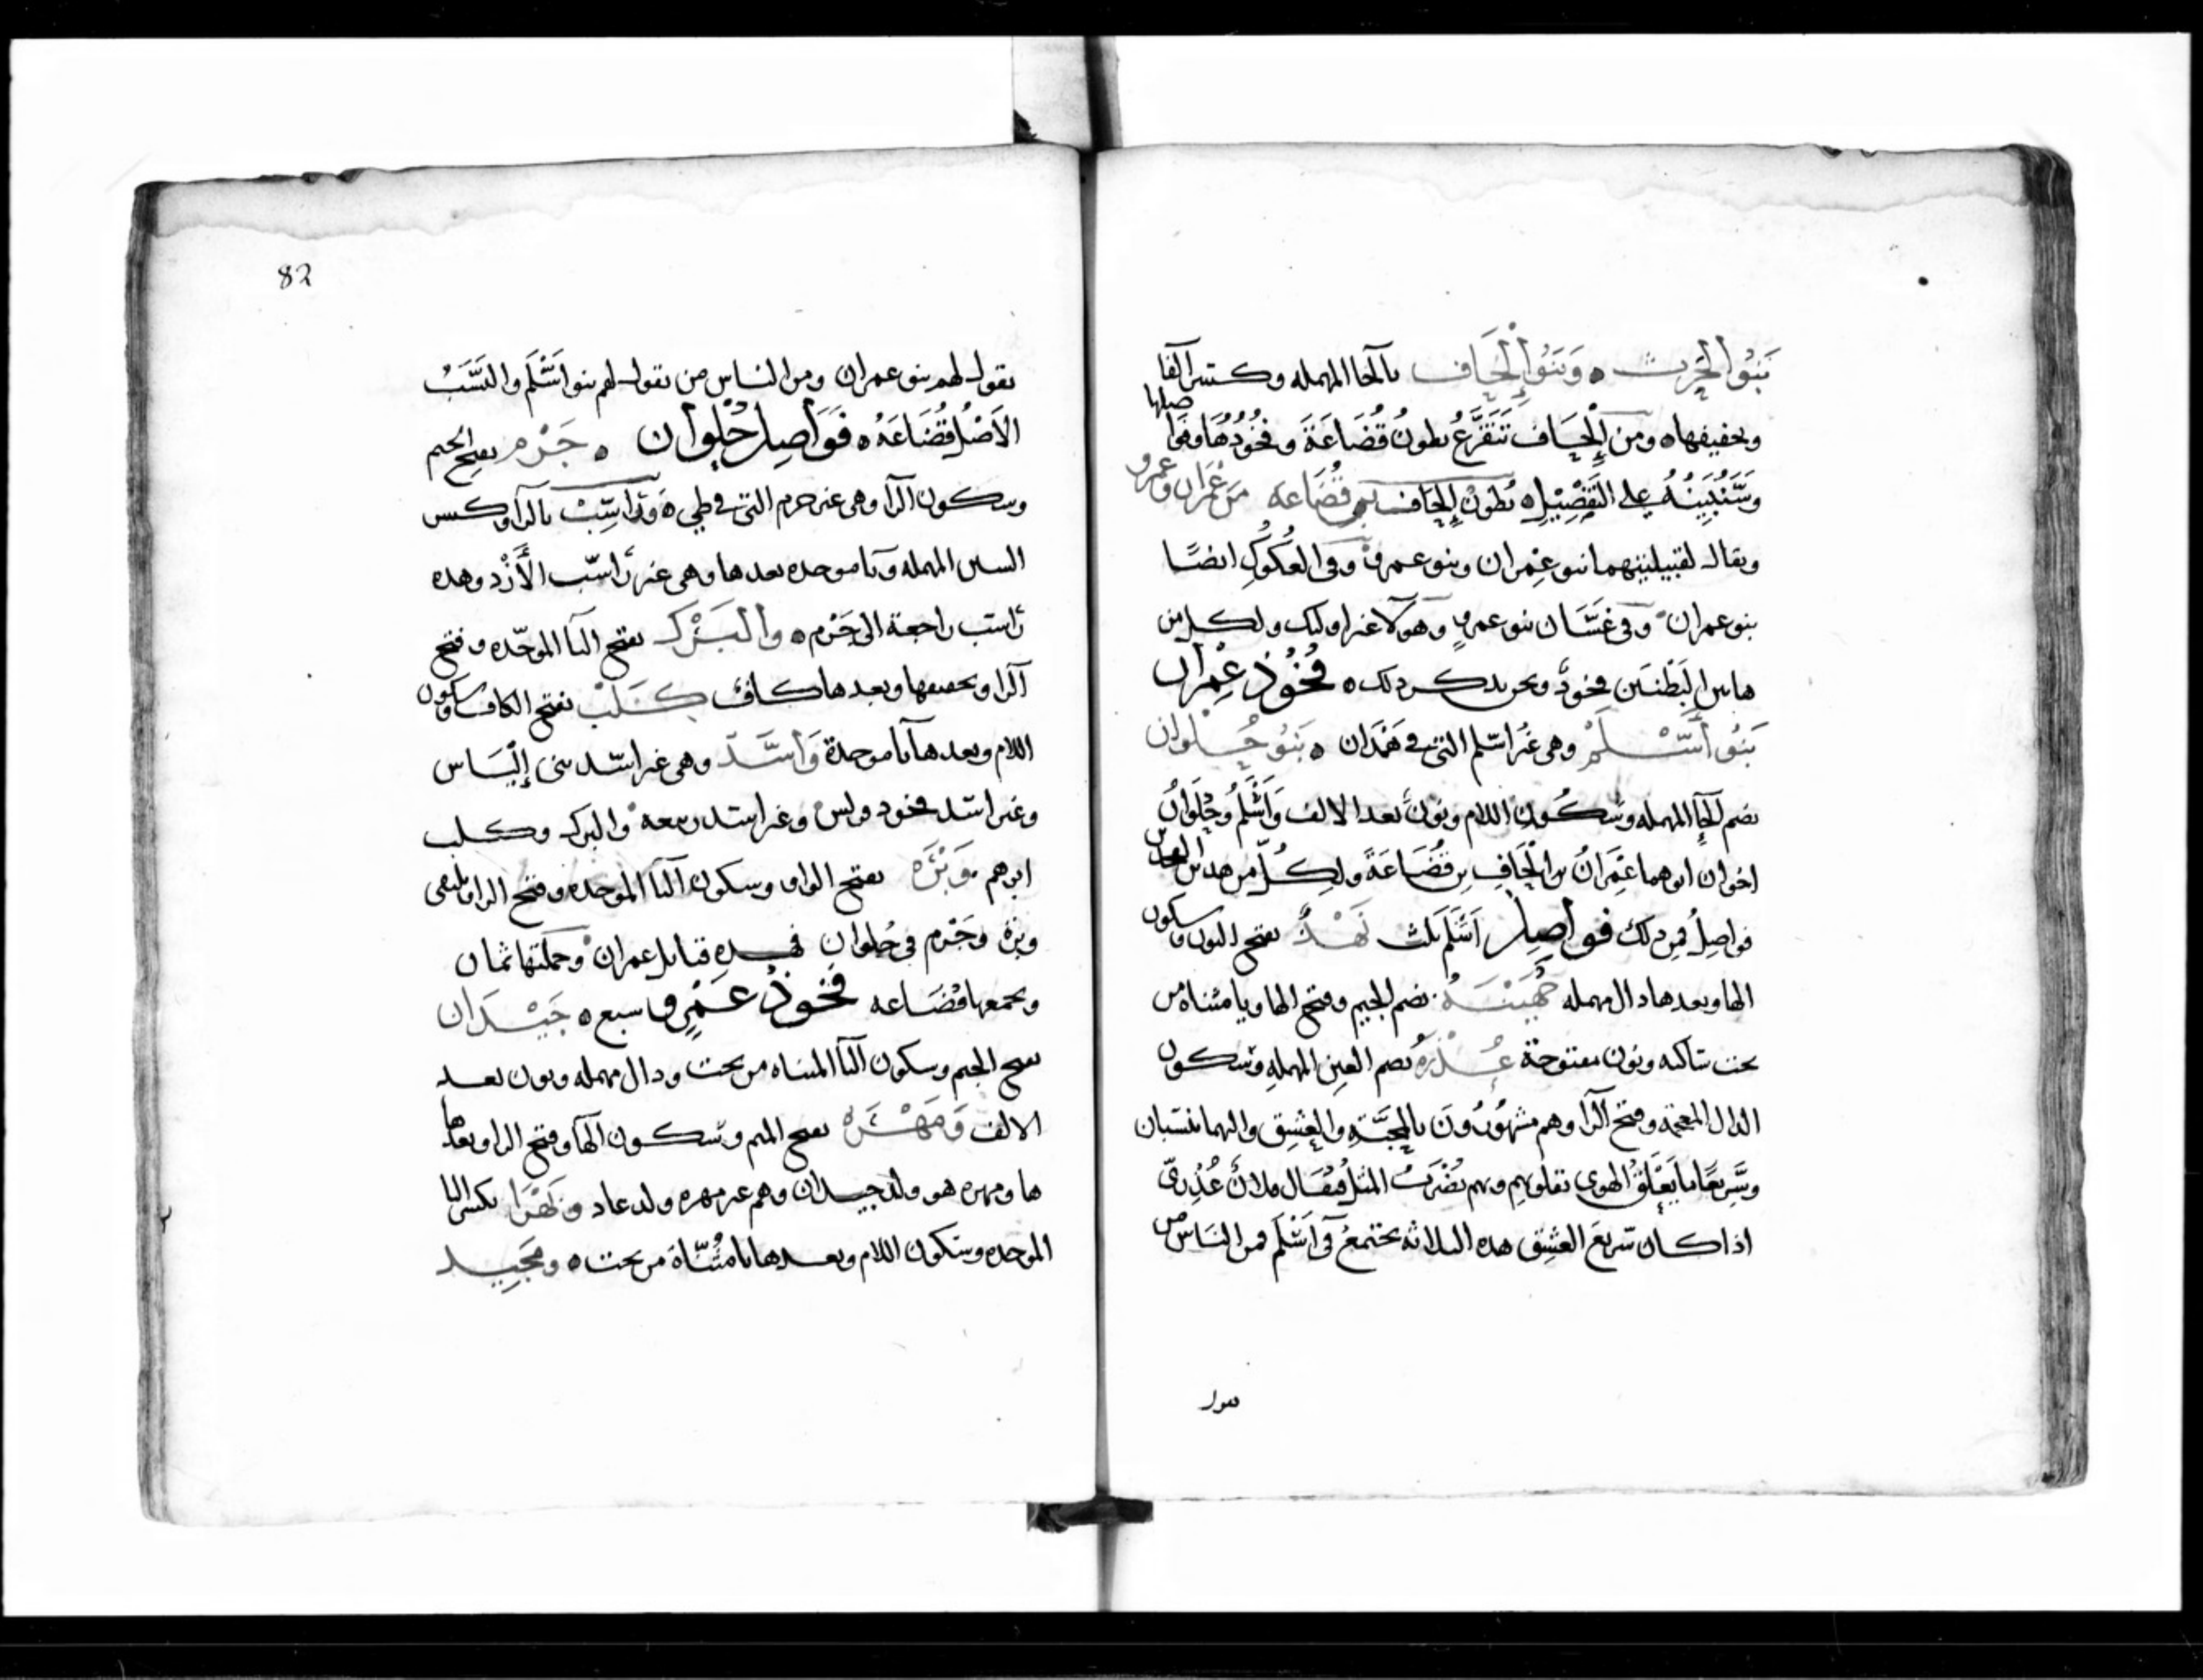 بَنُو الحَرِث ٥ وَبَنُو إِلْحَاف بالحا المهمله وكسر الفا
وتخفيفها ٥ ومن إلْحَاف تَتَفَرَّعُ بطونُ قُضَاعَةَ وفُخُوذُهَا وفَوا صلها
وَسَنُبَيِّنُهُ على التَّفْصِيْلِ ٥ بُطونُ إِلحاف بن قُضَاعه من عِمْرَان وعمرو
ويقال لقبيلتيهما بنو عِمران وبنو عمرو وفي العُكُوكِ ايضًا
بنو عمران وفي غَسَّان بنو عمرو وهولا غير اوليك ولكل من
هاتين البَطْنَين فخوذ ونحن نذكر ذلك ٥ فُخُوذ عِمْرَان
بَنُو أَسْلَم وهى غير اسلم التى في هَمْدَان ٥ بَنُو حُلْوان
بضم الحآ المهمله وسكون اللام ونون بعد الالف وَأَسْلَمُ وحُلْوَانُ
اخوان ابوهما عِمْرَانُ بن الحَافِ بن قُضَاعَةَ ولِكُلّ من هذين
فواصِلُ فمن ذلك فواصِل أَسْلَم ثلث نَهْدٌ بفتح النون وسكون
الها وبعدها دال مهمله جُهَيْنَةُ بضم الجيم وفتح الها ويا مثناة من
تحت ساكنه ونون مفتوحة عُذْرَةُ بضم العين المهملهِ وسكون
الذال المعجمه وفتح الرآ وهم مشهُورُونَ بالمحَبَّةِ والعِشِق واليهما ينتسبان
وسَرِيعًا ما يَعْلَقُ الهوى بقلوبهِم وبهم يُضْرَبُ المثلُ فيُقال فلانُ عُذْرِىّ
اذا كان سريعَ العشِق هذه الثلاثه يجتمعُ في أسْلَم فمن النَاس من
يقول
82
يقول لهم بنو عمران ومن الناس من يقول لهم بنو اسْلَم والنسَبُ
الأَصْلُ قُضَاعَهُ ٥ فَوَاصِل حُلْوان ٥ جَرْم بفتح الجيم
وسكون الرآ وهى غير جرم التى في طى ٥ وَرَاسِبْ بالرآ وكسر
السين المهمله وبا موحده بعدها وهى غير رَاسب الأَزْد وهذه
رَاسب راجعة الى جَرْم ٥ والبَرْك بفتح البآ الموحّده وفتح
الرا وتخفيفها وبعدها كاف كَلْب بفتح الكاف وسكون
اللام وبعدها با موحدة وَأسَد وهى غير اسد بنى إلْيَاس
وغير اسد فخوذ وغير اسد ربيعه والبرك وكلب
ابوهم وَبْرَه بفتح الواو وسكون البآ الموحده وفتح الرا ويلتقى
وبرة وجَرْم في حُلوان فهذه قبايل عمران وجملتها ثمان
وتجمعها قُضَاعه فُخُوذُ عَمْرٍو سبع ٥ جَيْدَان
بفتح الجيم وسكون اليآ المثناه من تحت ودال مهمله ونون بعد
الالف وَمَهْرَه بفتح الميم وسكون الهآ وفتح الرا وبعدها
ها ومهره هو ولد جيدان وهم غير مهره ولد عاد وبَهْرَا بكسر البا
الموحده وسكون اللام وبعدها يا مُثَنَّاة من تحت ٥ ومَجِيد